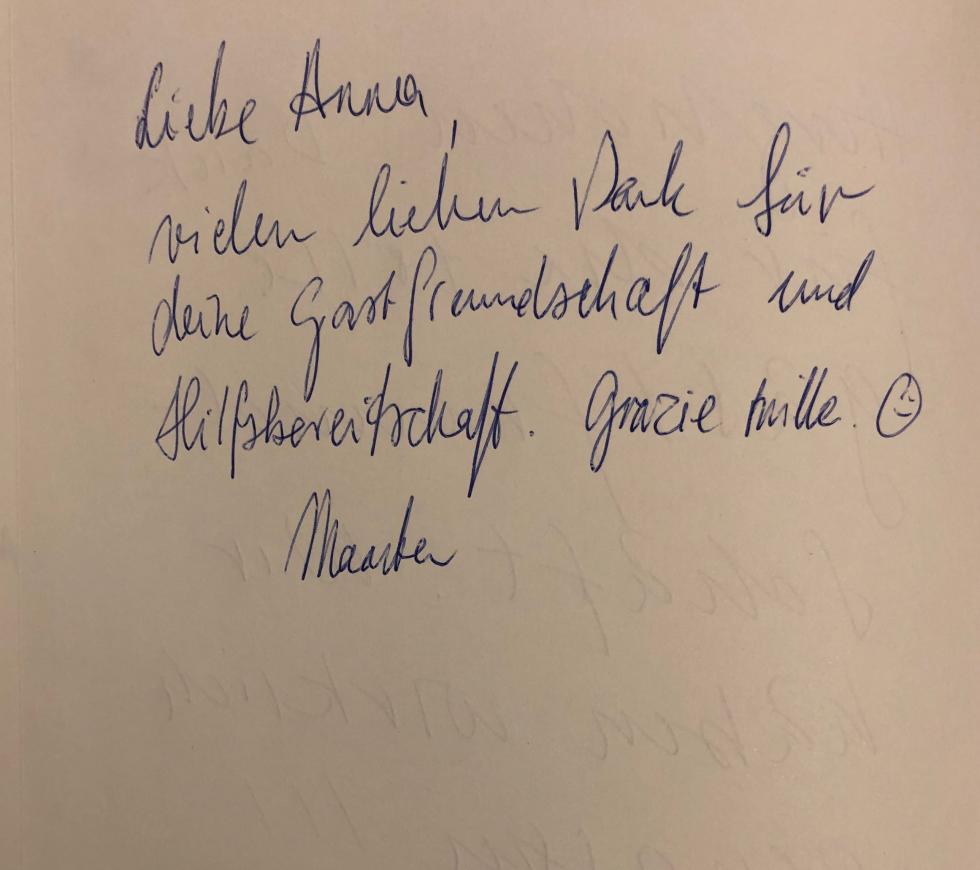 Liebe Anna,
vielen lieben Dank für
deine Gastfreundschaft und
Hilfsbereitschaft. Grazie mille. ☺
Maarten